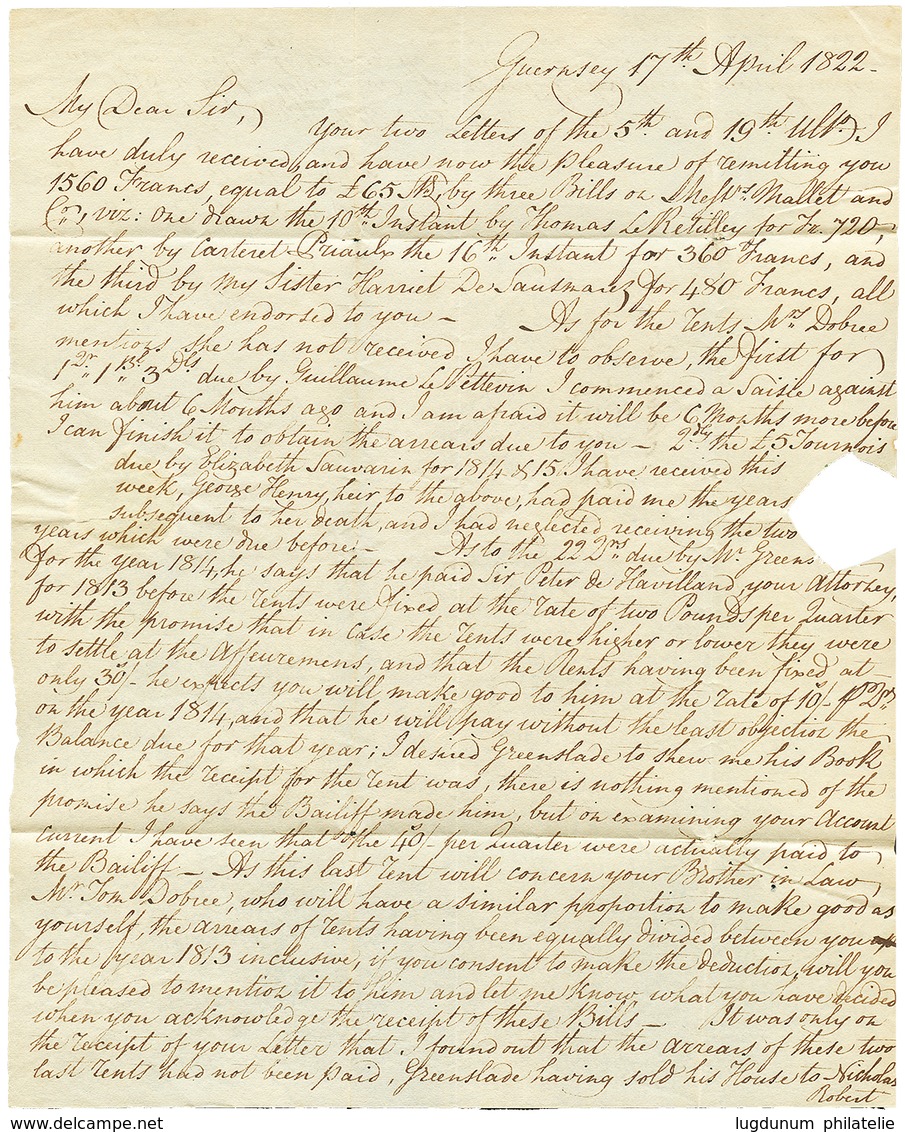 Guernsey 17th April 1822 -
My Dear Sir,
Your two Letters of the 5th and 19th Ulto. I
have duly received, and have now the pleasure of remitting you
1560 Francs, equal to £65 Stg, by three Bills on Messrs. Mallet and
Co., viz: one drawn the 10th Instant by Thomas Le Retilley for Fr. 720,
another by Carteret Priaulx the 16th Instant for 360 Francs, and
the third by my Sister Harriet De Sausmarez for 480 Francs, all
which I have endorsed to you - As for the rents Mrs. Dobree
mentions she has not received I have to observe, the first for
1 Qr. 1 3 Ds. due by Guillaume Le Pettevin I commenced a Saisie against
him about 6 Months ago and I am afraid it will be 6 Months more before
I can finish it to obtain the arrears due to you - 2dly the £5 Tournois
due by Elizabeth Sauvarin for 1814 & 15 I have received this
week, George Henry, heir to the above, had paid me the years
subsequent to her death, and I had neglected receiving the two
years which were due before. - As to the 22 Qrs due by Mr. Greens
for the year 1814, he says that he paid Sir Peter de Havilland, your Attorney,
for 1813 before the rents were fixed at the rate of two Pounds per Quarter
with the promise that in case the rents were higher or lower they were
to settle at the affeuremens, and that the Rents having been fixed at
only 30/- he expects you will make good to him at the rate of 10/- p Qr.
on the year 1814, and that he will pay without the least objection the
Balance due for that year; I desired Greenslade to shew me his Book
in which the receipt for the rent was, there is nothing mentioned of the
promise he says the Bailiff made him, but on examining your Account
current I have seen that the 40/- per Quarter were actually paid to
the Bailiff - As this last rent will concern your Brother in Law
Mr. Tom Dobree, who will have a similar proportion to make good as
yourself, the arrears of rents having been equally divided between you
to the year 1813 inclusive, if you consent to make the deduction, will you
be pleased to mention it to him and let me know what you have decided
when you acknowledge the receipt of these Bills - It was only on
the receipt of your Letter that I found out that the arrears of these two
last rents had not been paid, Greenslade having sold his House to Nicholas
Robert
lugdunum philatelie